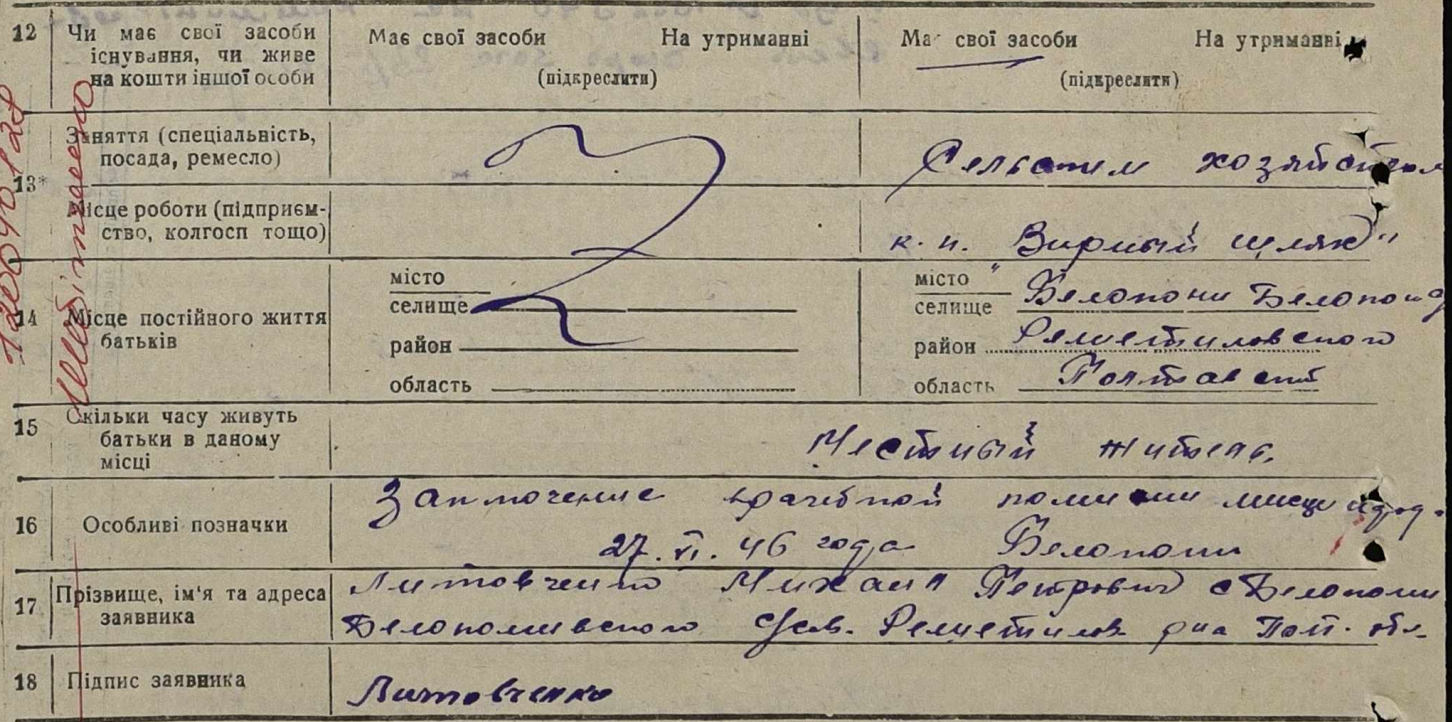 12 Чи має свої засоби існування, чи живе на кошти іншої особи
Має свої засоби На утриманні
(підкреслити)
Має свої засоби На утриманні
(підкреслити)
13* Заняття (спеціальність, посада, ремесло)
хозяйством
Місце роботи (підприємство, колгосп тощо)
к. и. "Вирный шлях"
14 Місце постійного життя батьків
місто
селище
район
область
місто
селище Белокони
район Решетиловского
область Полтавск
15 Скільки часу живуть батьки в даному місці
Местный житель.
16 Особливі позначки
Заключение врачебной
27. VI. 46 года Белокони
17 Прізвище, ім'я та адреса заявника
Литовченко Михаил Петрович с Белокони
Решетилов. р-на Пол. обл.
18 Підпис заявника
Литовченко